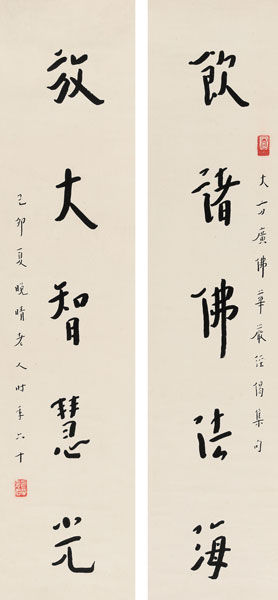 飲諸佛法海
大方廣佛華嚴經偈集句
放大智慧光
己卯夏晚晴老人時年六十